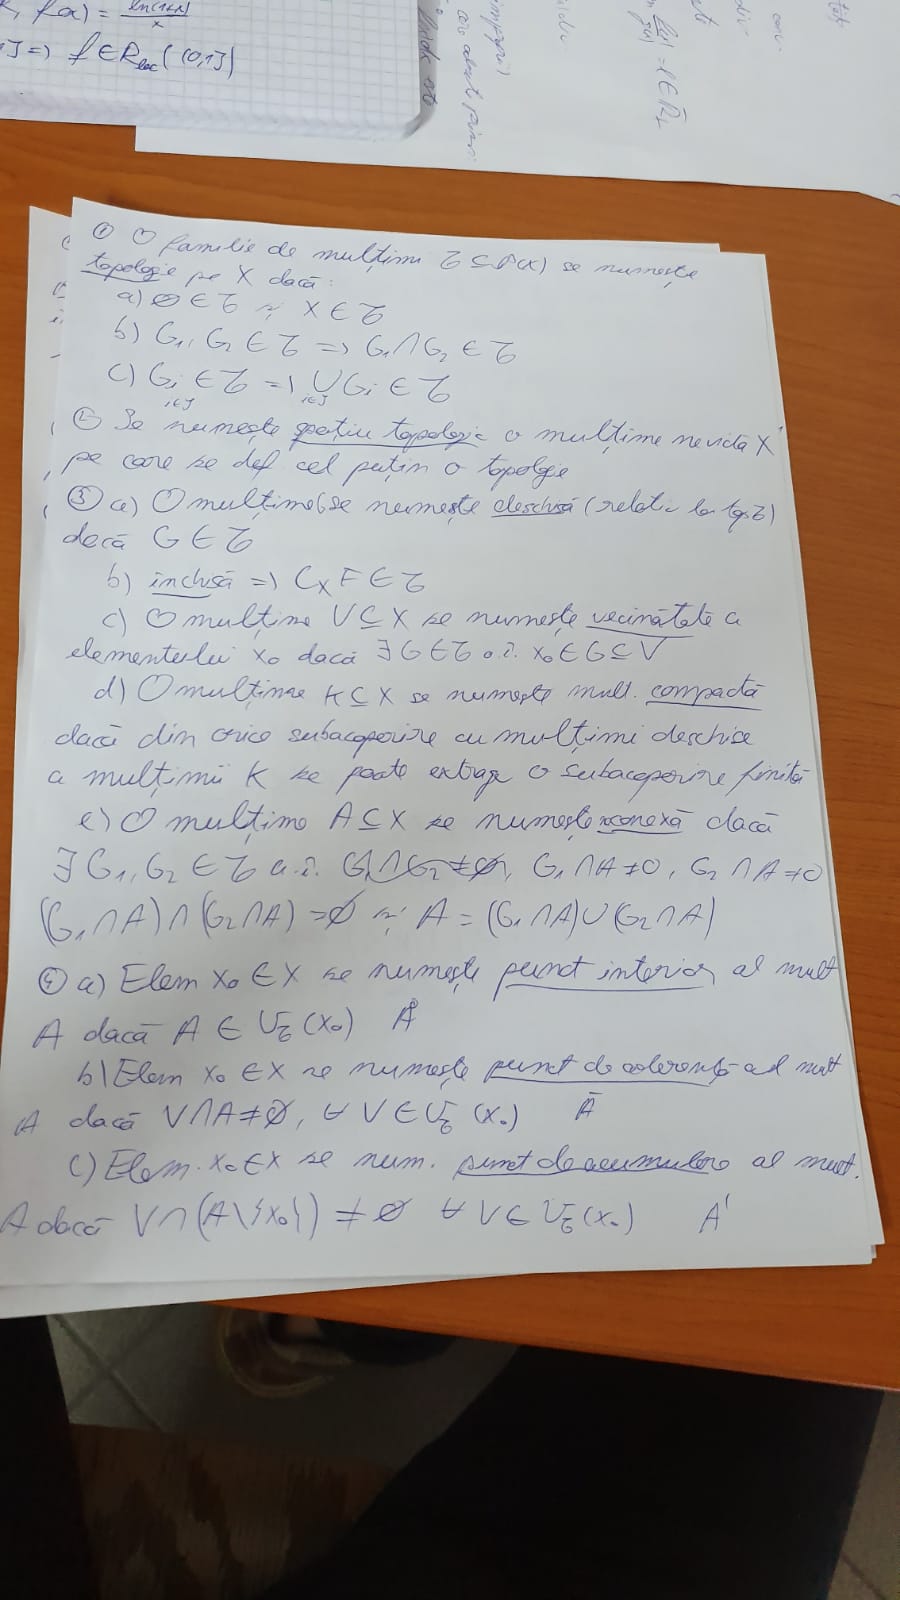 f(x) = ln(1+x)/x
=) f ∈ R_loc ((0,1])
① O familie de mulțimi τ ⊆ P(X) se numește
topologie pe X dacă:
a) ∅ ∈ τ și X ∈ τ
b) G₁, G₂ ∈ τ => G₁ ∩ G₂ ∈ τ
c) Gi ∈ τ => ∪ Gi ∈ τ
i∈J i∈J
② Se numește spațiu topologic o mulțime nevidă X
pe care se def cel puțin o topolgie
③ a) O mulțime G se numește deschisă (relativ la top τ)
dacă G ∈ τ
b) închisă => C_X F ∈ τ
c) O mulțime V ⊆ X se numește vecinătate a
elementului x₀ dacă ∃ G ∈ τ a.î. x₀ ∈ G ⊆ V
d) O mulțime K ⊆ X se numește mult. compactă
dacă din orice subacoperire cu mulțimi deschise
a mulțimii K se poate extrage o subacoperire finită
e) O mulțime A ⊆ X se numește conexă dacă
∃ G₁, G₂ ∈ τ a.î. G₁ ∩ G₂ ≠ ∅, G₁ ∩ A ≠ ∅, G₂ ∩ A ≠ ∅
(G₁ ∩ A) ∩ (G₂ ∩ A) = ∅ și A = (G₁ ∩ A) ∪ (G₂ ∩ A)
④ a) Elem x₀ ∈ X se numește punct interior al mult
A dacă A ∈ V_τ(x₀) Å
b) Elem x₀ ∈ X se numește punct de aderență al mult
A dacă V ∩ A ≠ ∅, ∀ V ∈ V_τ(x₀) Ā
c) Elem. x₀ ∈ X se num. punct de acumulare al mult.
A dacă V ∩ (A \ {x₀}) ≠ ∅ ∀ V ∈ V_τ(x₀) A'